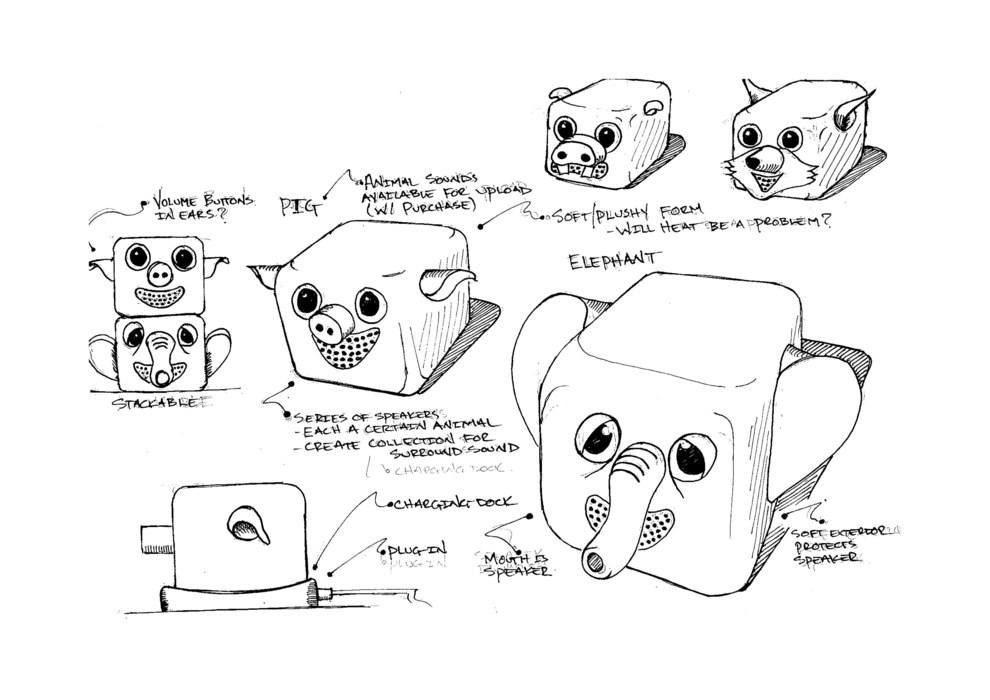 VOLUME BUTTONS
IN EARS?
PIG
ANIMAL SOUNDS
AVAILABLE FOR UPLOAD
(W/ PURCHASE)
SOFT/PLUSHY FORM
- WILL HEAT BE A PROBLEM?
ELEPHANT
STACKABLE
SERIES OF SPEAKERS
- EACH A CERTAIN ANIMAL
- CREATE COLLECTION FOR
SURROUND SOUND
CHARGING DOCK
CHARGING DOCK
PLUG IN
PLUG IN
MOUTH IS
SPEAKER
SOFT EXTERIOR
PROTECTS
SPEAKER